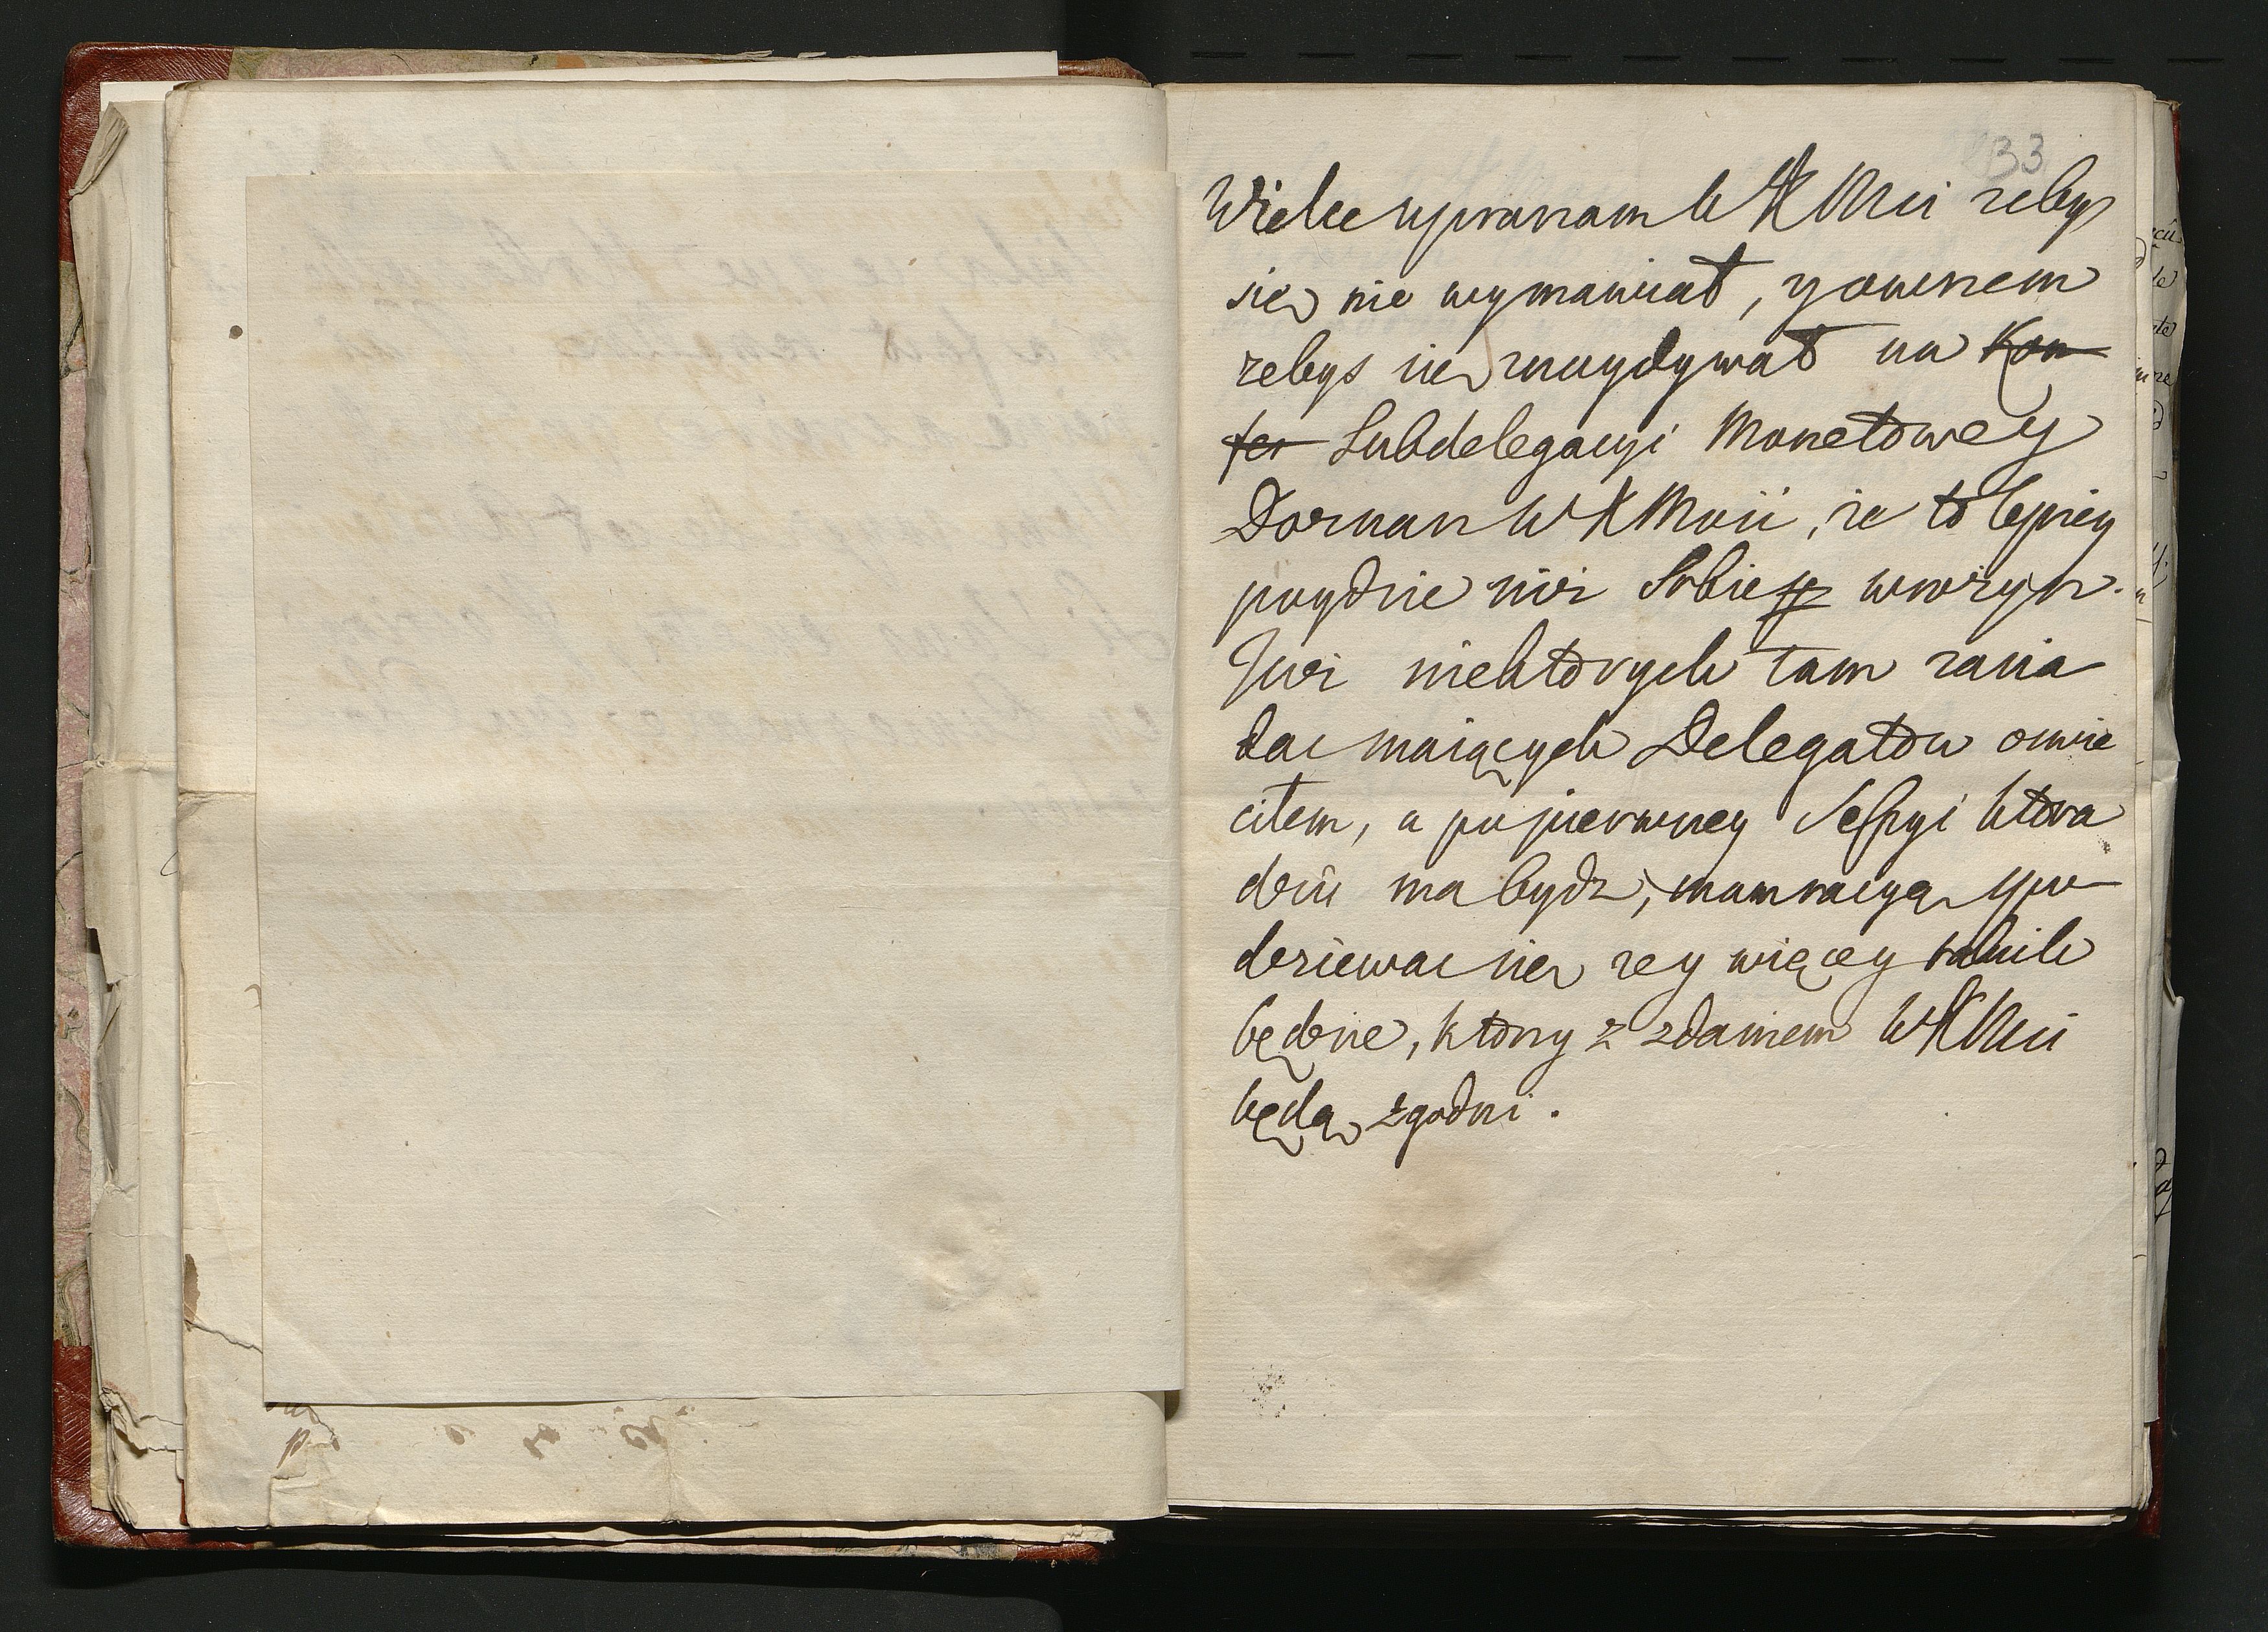 33
Wielce upraszam WXMci zebys
się nie wymawiał, y owszem
zebys się znaydywał na Kon
fer Subdelegacyi Monetowey
Doznasz WXMosci, że to lepiey
poydzie niż Sobie wrożysz.
Juz niektorych tam zasia
dac maiących Delegatow oswie
ciłem, a po pierwszey Sessyi ktora
dziś ma bydz, mam racyą spo
dziewac się ze y więcey takich
będzie, ktorzy z zdaniem WXMci
będą zgodni.